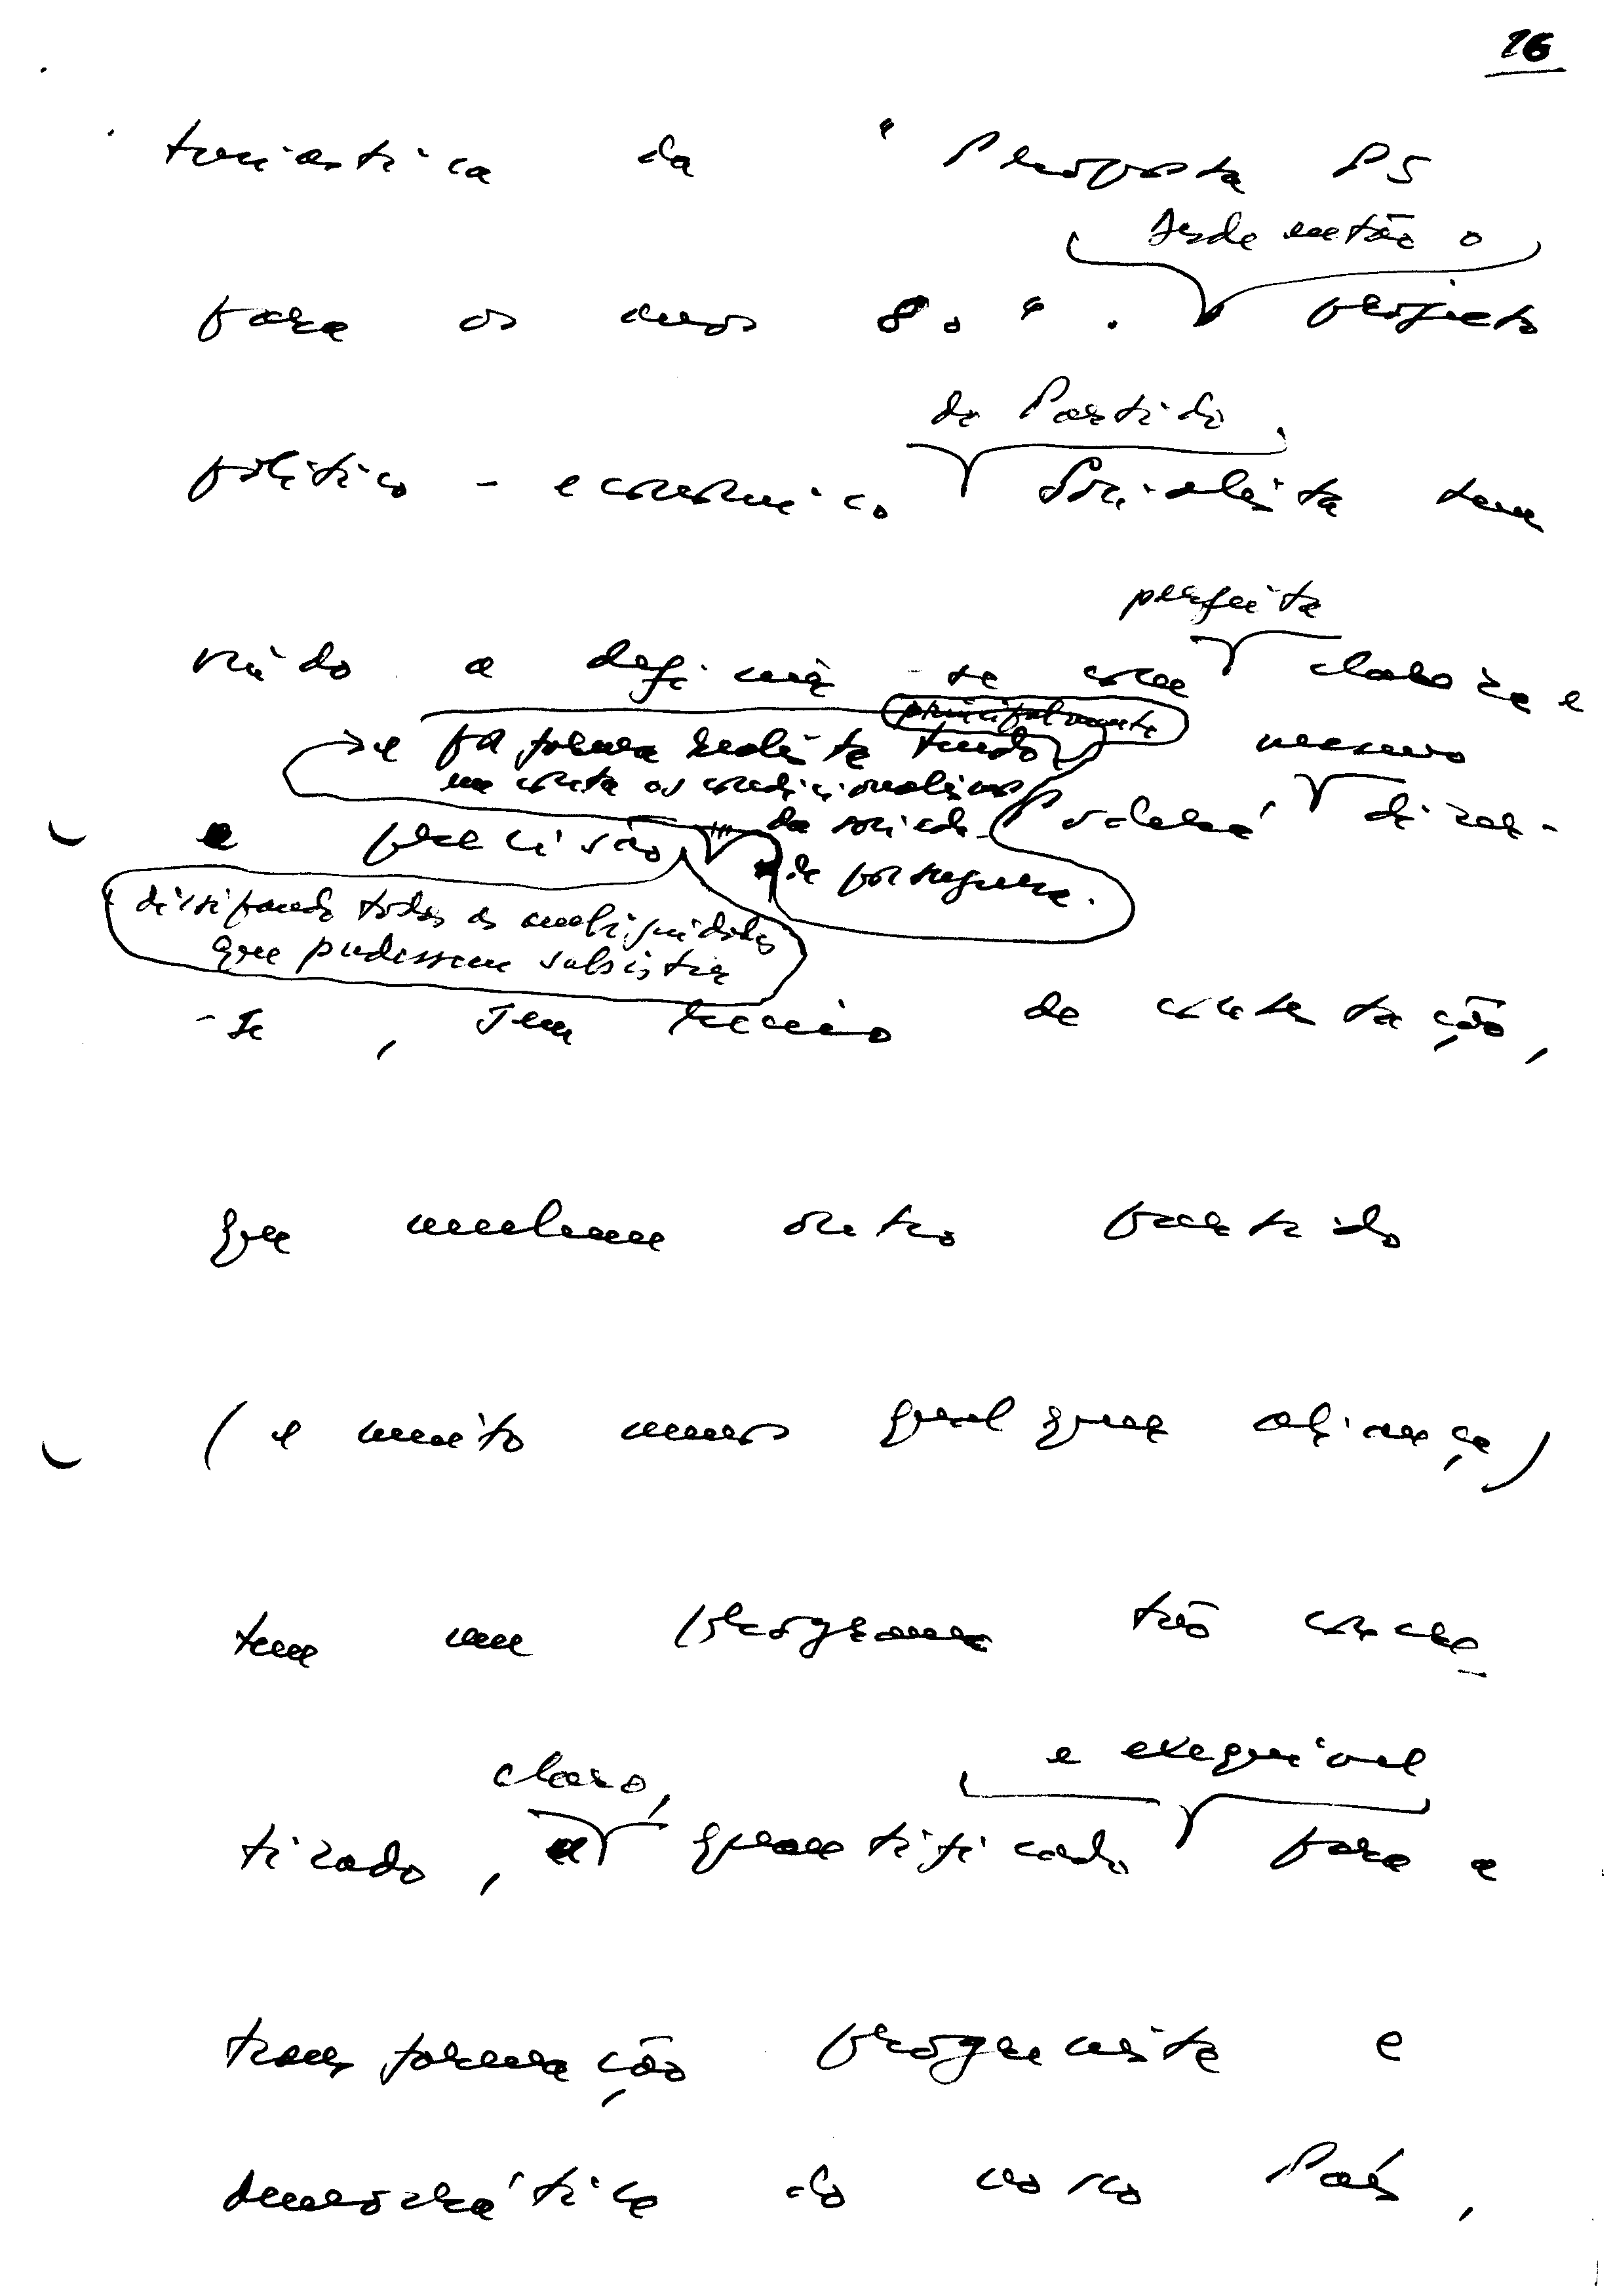 16
tusiástica da "Proposta PS
desde então o
para os anos 80". projecto
do Partido
político-económico Socialista tem
perfeita
vindo a definir-se com clareza e
principalmente
e forma realista tendo mesmo
em conta os condicionalismos
da socieda- Poderá dizer-
e precisão
de portuguesa.
dissipando todas as ambiguidades
que pudessem subsistir
-se, sem receio de contestação,
que nenhum outro partido
(e muito menos qualquer aliança)
tem um programa tão concre-
e exequível
claro,
tizado, e quantificado para a
transformação progressista e
democrática do nosso País,